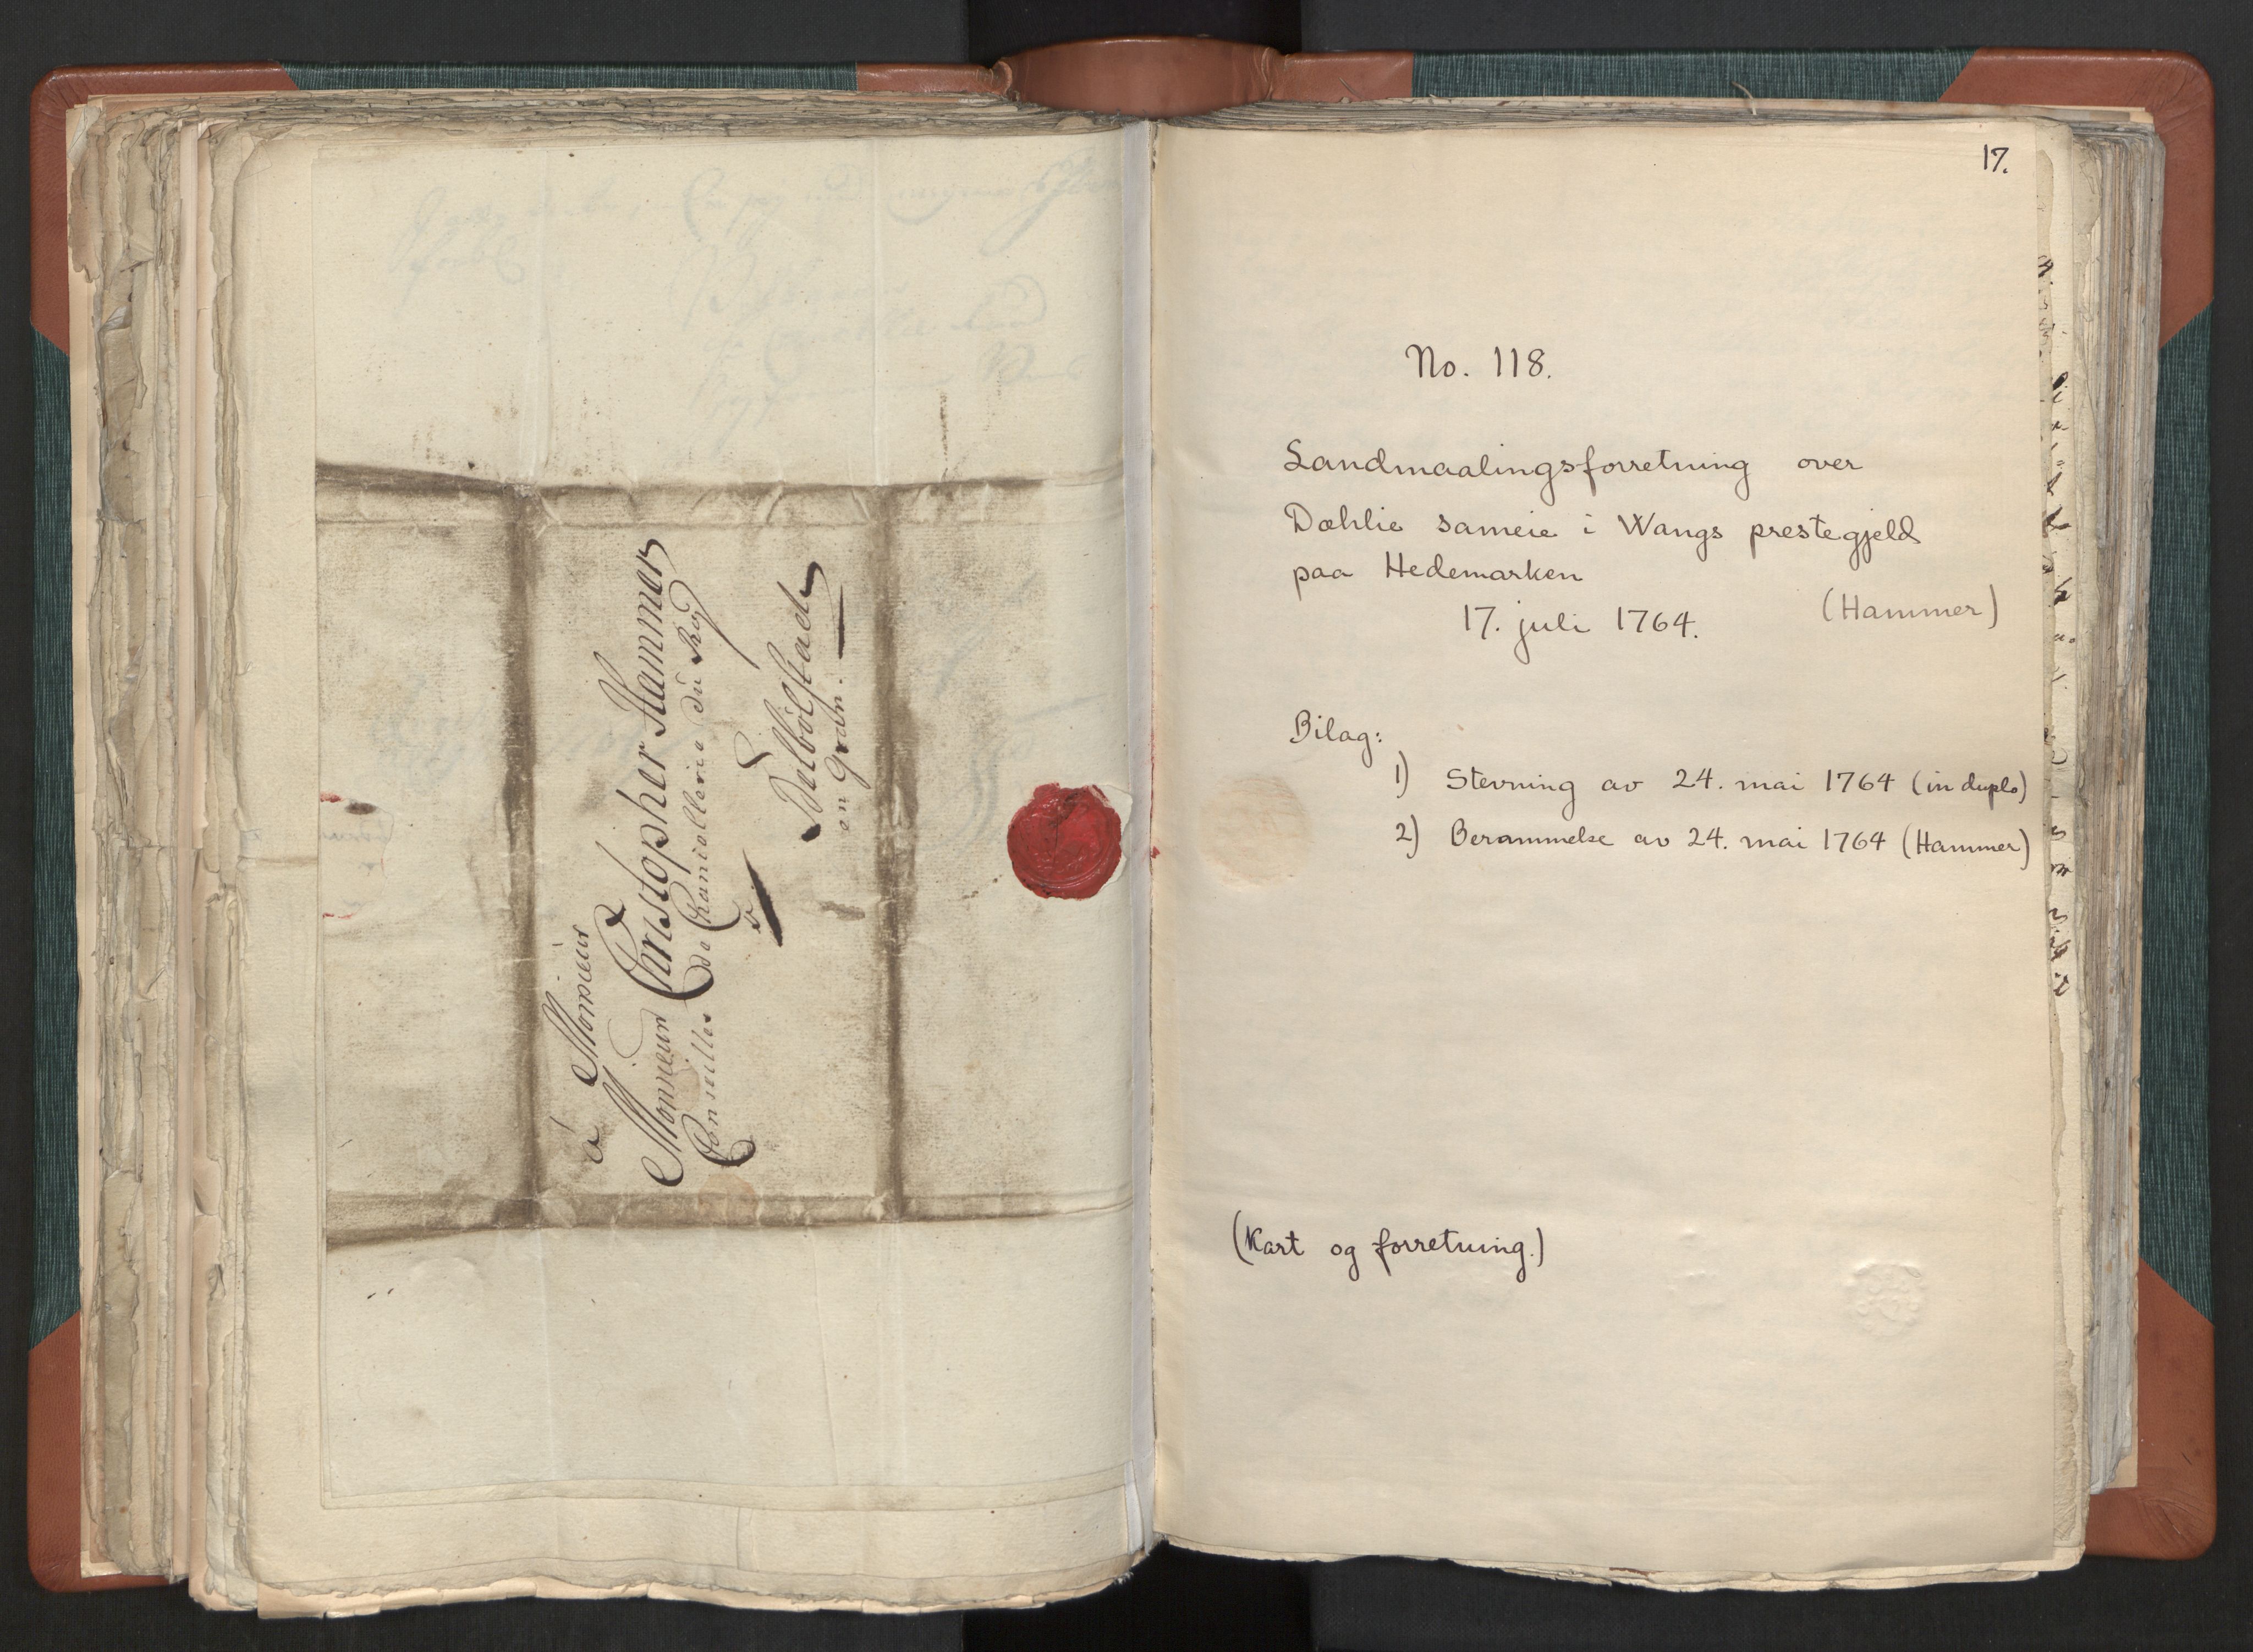 à Monsieur
Monsieur Christopher Hammer
Conseiller de Chancellerie du Roy
à
Melbölstad
en Gran.
17.
No. 118.
Landmaalingsforretning over
Dæhlie sameie i Wangs prestegjeld
paa Hedemarken
17. juli 1764. (Hammer)
Bilag:
1) Stevning av 24. mai 1764 (in duplo)
2) Berammelse av 24. mai 1764 (Hammer)
(Kart og forretning.)